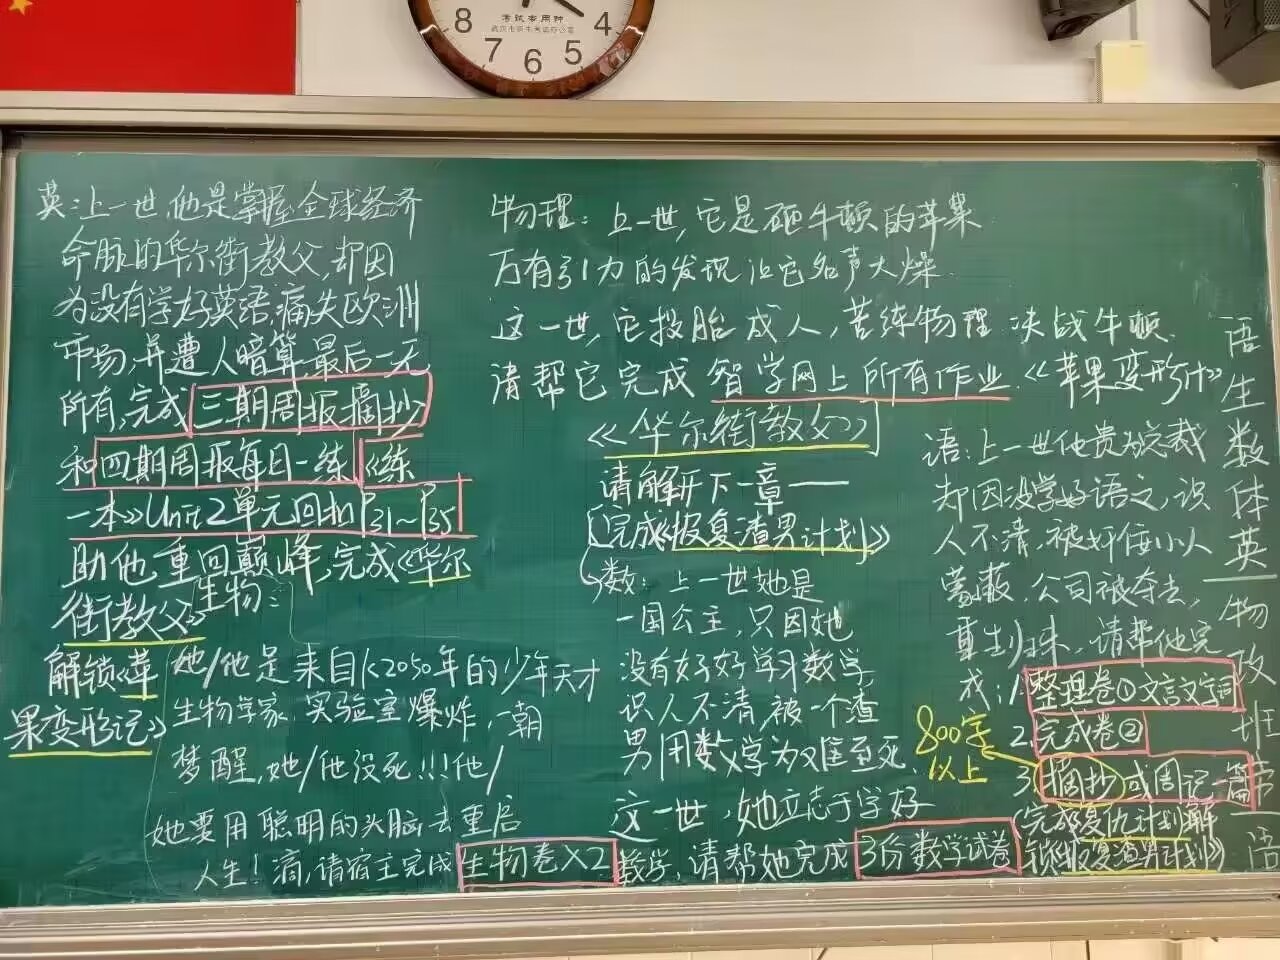 8
7
6
5
4
考试专用钟
英:上一世,他是掌握全球经济
命脉的华尔街教父,却因
为没有学好英语,痛失欧洲
市场,并遭人暗算,最后一无
所有,完成三期周报摘抄
和四期周报每日一练《练
一本》Unit2单元回扣P31~P35
助他重回巅峰,完成《华尔
街教父》
解锁《苹
果变形记》
生物:
她/他是来自2050年的少年天才
生物学家,实验室爆炸,一朝
梦醒,她/他没死!!!他/
她要用聪明的头脑去重启
人生!滴,请宿主完成生物卷×2
物理:上一世,它是砸牛顿的苹果
万有引力的发现让它名声大燥.
这一世,它投胎成人,苦练物理 决战牛顿.
请帮它完成智学网上所有作业.《苹果变形计》
《华尔街教父》
请解开下一章——
完成《报复渣男计划》
数:上一世她是
一国公主,只因她
没有好好学习数学,
识人不清,被一个渣
男用数学为难至死.
这一世,她立志于学好
数学,请帮她完成3份数学试卷
语:上一世他贵为总裁
却因没学好语文,识
人不清,被奸佞小人
蒙蔽,公司被夺去,
重生归来,请帮他完
成:1.整理卷①文言文字词
2.完成卷②
3.摘抄或周记一篇
800字
以上
(完成复仇计划,解
锁《报复渣男计划》)
语
生
数
体
英
物
政
班
语